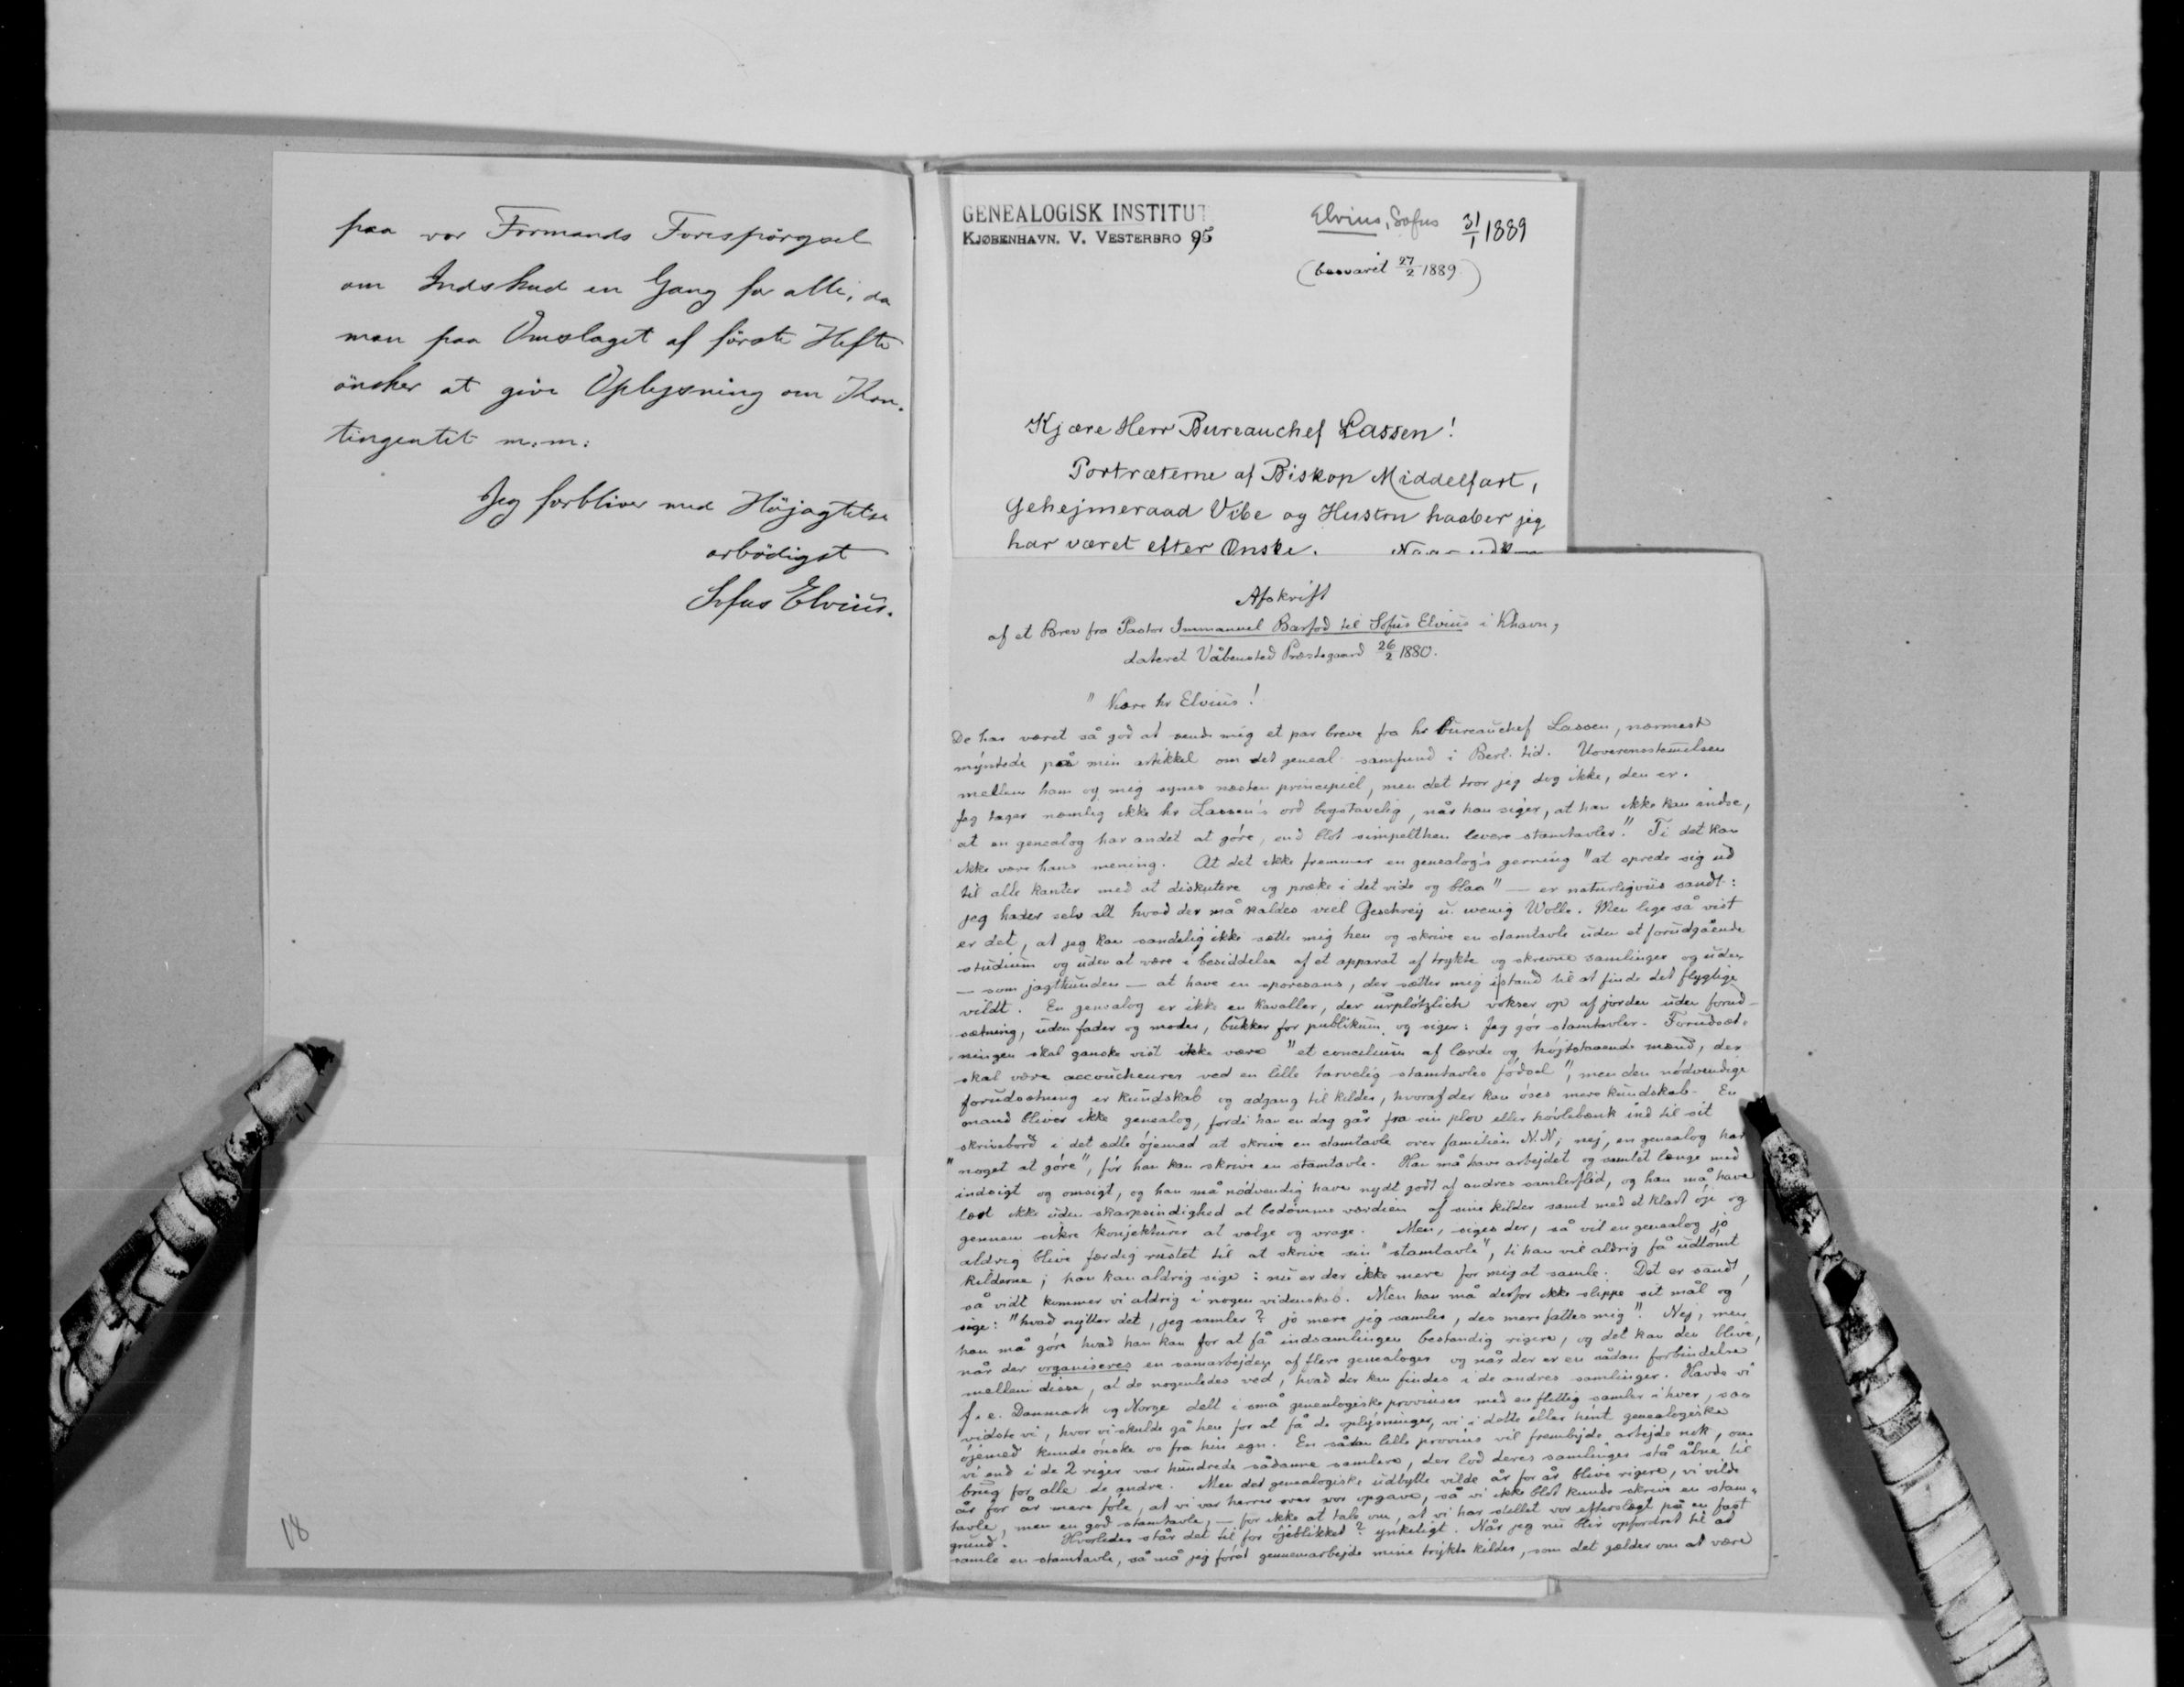 paa vor Formands Forespörgsel
om Indskud en Gang for alle, da
man paa Omslaget af förste Hefte
önsker at give Oplysning om Kon-
tingentet m.m.
Jeg forbliver med Höjagtelse
arbödigst
Sofus Elvius.
18
GENEALOGISK INSTITUT
KJØBENHAVN. V. VESTERBRO 95
Elvius, Sofus 31/1 1889
(besvaret 27/2 1889)
Kjære Herr Bureauchef Lassen!
Portræterne af Biskop Middelfart,
Gehejmeraad Vibe og Hustru haaber jeg
har været efter Ønske.
Afskrift
af et Brev fra Pastor Immanuel Barfod til Sofus Elvius i Khavn,
dateret Våbensted Præstegaard 26/2 1880.
"Kære hr Elvius!
De har været så god at sende mig et par breve fra hr bureauchef Lassen, nærmest
myntede på min artikkel om det geneal. samfund i Berl. tid. Uoverensstemmelsen
mellem ham og mig synes næsten principiel, men det tror jeg dog ikke, den er.
Jeg tager nemlig ikke hr Lassen's ord bogstavelig, når han siger, at han ikke kan indse,
at en genealog har andet at góre, end blot simpelthen levere stamtavler." Ti det kan
ikke være hans mening. At det ikke fremmer en genealog's gerning "at sprede sig ud
til alle kanter med at diskutere og præke i det vide og blaa" — er naturligvis sandt:
jeg hader selv alt hvad der må kaldes viel Geschrey u. wenig Wolle. Men lige så vist
er det, at jeg kan sandelig ikke sætte mig hen og skrive en stamtavle uden et forudgående
studium og uden at være i besiddelse af et apparat af trykte og skrevne samlinger og uden
— som jagthunden — at have en sporesans, der sætter mig istand til at finde det flygtige
vildt. En genealog er ikke en kavaller, der urplötzlich vokser op af jorden uden forud-
sætning, uden fader og moder, bukker for publikum og siger: Jeg gór stamtavler. Forudsæt-
ningen skal ganske vist ikke være "et concilium af lærde og højtstaaende mænd, der
skal være accoucheurer ved en lille tarvelig stamtavles födsel", men den nödvendige
forudsætning er kundskab og adgang til kilder, hvoraf der kan öses mere kundskab. En
mand bliver ikke genealog, fordi han en dag går fra sin plov eller hövlebænk ind til sit
skrivebord i det ædle öjemed at skrive en stamtavle over familien N.N; nej, en genealog har
"noget at góre", fór han kan skrive en stamtavle. Han må have arbejdet og samlet længe med
indsigt og omsigt, og han må nödvendig have nydt godt af andres samlerflid, og han må have
lært ikke uden skarpsindighed at bedömme værdien af sine kilder samt med et klart öje og
gennem sikre konjekturer at vælge og vrage. Men, siges der, så vil en genealog jo
aldrig blive færdig rustet til at skrive sin "stamtavle", ti han vil aldrig få udtömt
kilderne; han kan aldrig sige: nu er der ikke mere for mig at samle. Det er sandt,
så vidt kommer vi aldrig i nogen videnskab. Men han må derfor ikke slippe sit mål og
sige: "hvad nytter det, jeg samler? jo mere jeg samler, des mere fattes mig". Nej, men
han må góre hvad han kan for at få indsamlingen bestandig rigere, og det kan den blive,
når der organiseres en samarbejden af flere genealoger og når der er en sådan forbindelse
mellem disse, at de nogenledes ved, hvad der kan findes i de andres samlinger. Havde vi
f. e. Danmark og Norge delt i små genealogiske provinser med en flittig samler i hver, saa
vidste vi, hvor vi skulde gå hen for at få de oplysninger, vi i dette eller hint genealogiske
öjemed kunde önske os fra hin egn. En sådan lille provins vil frembyde arbejde nok, om
vi end i de 2 riger var hundrede sådanne samlere, der lod deres samlinger stå åbne til
brug for alle de andre. Men det genealogiske udbytte vilde år for år blive rigere, vi vilde
år for år mere föle, at vi var herrer over vor opgave, så vi ikke blot kunde skrive en stam-
tavle, men en god stamtavle, — for ikke at tale om, at vi har stillet vor efterslægt på en fast
grund. Hvorledes står det til for öjeblikket? ynkeligt. Når jeg nu blir opfordret til at
samle en stamtavle, så må jeg först gennemarbejde mine trykte kilder, som det gælder om at være